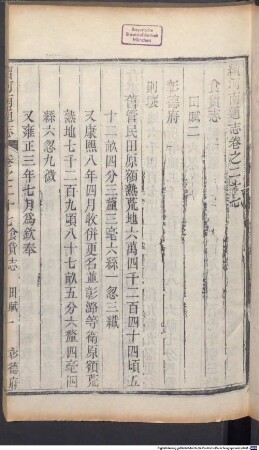 續河南通志卷之二十七
食貨志
田賦二
彰德府
則壤
舊管民田原額熟荒地六萬四千二百四十四頃五
十二畝四分三釐三毫六絲一忽三纖
又康熙八年四月收併更名並彰潞等衛原額荒
熟地七千二百九頃八十七畝五分六釐四毫四
絲六忽九微
又雍正三年七月為欽奉
續河南通志
卷之二十七食貨志
田賦二
彰德府
Bayerische
Staatsbibliothek
München